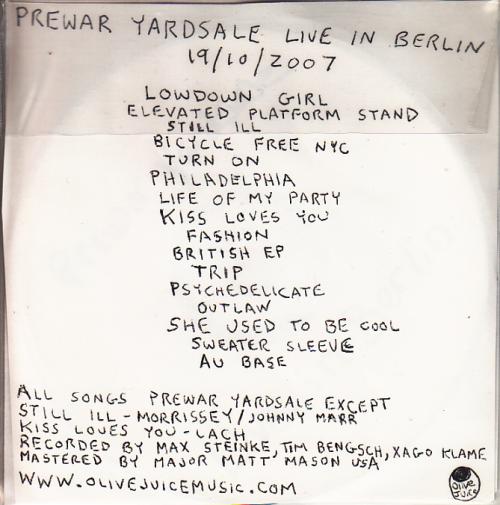 PREWAR YARDSALE LIVE IN BERLIN
19/10/2007
LOWDOWN GIRL
ELEVATED PLATFORM STAND
STILL ILL
BICYCLE FREE NYC
TURN ON
PHILADELPHIA
LIFE OF MY PARTY
KISS LOVES YOU
FASHION
BRITISH EP
TRIP
PSYCHEDELICATE
OUTLAW
SHE USED TO BE COOL
SWEATER SLEEVE
AU BASE
ALL SONGS PREWAR YARDSALE EXCEPT
STILL ILL - MORRISSEY/JOHNNY MARR
KISS LOVES YOU - LACH
RECORDED BY MAX STEINKE, TIM BENGSCH, XAGO KLAME
MASTERED BY MAJOR MATT MASON USA
WWW.OLIVEJUICEMUSIC.COM
OLIVE
JUICE